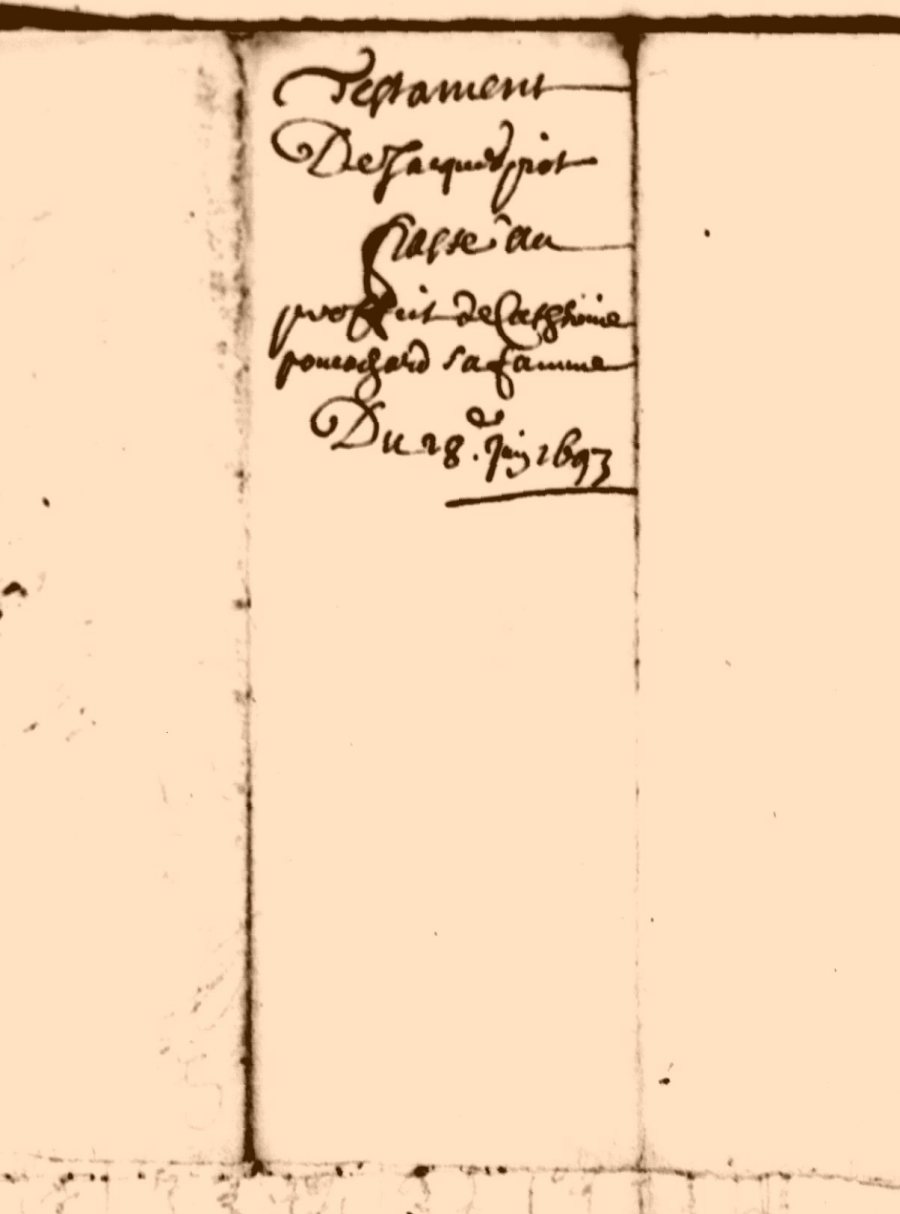 Testament
De Jacques piot
passé au
proffit de Catherine
pourchard sa famme
Du 28.e Juin 1693